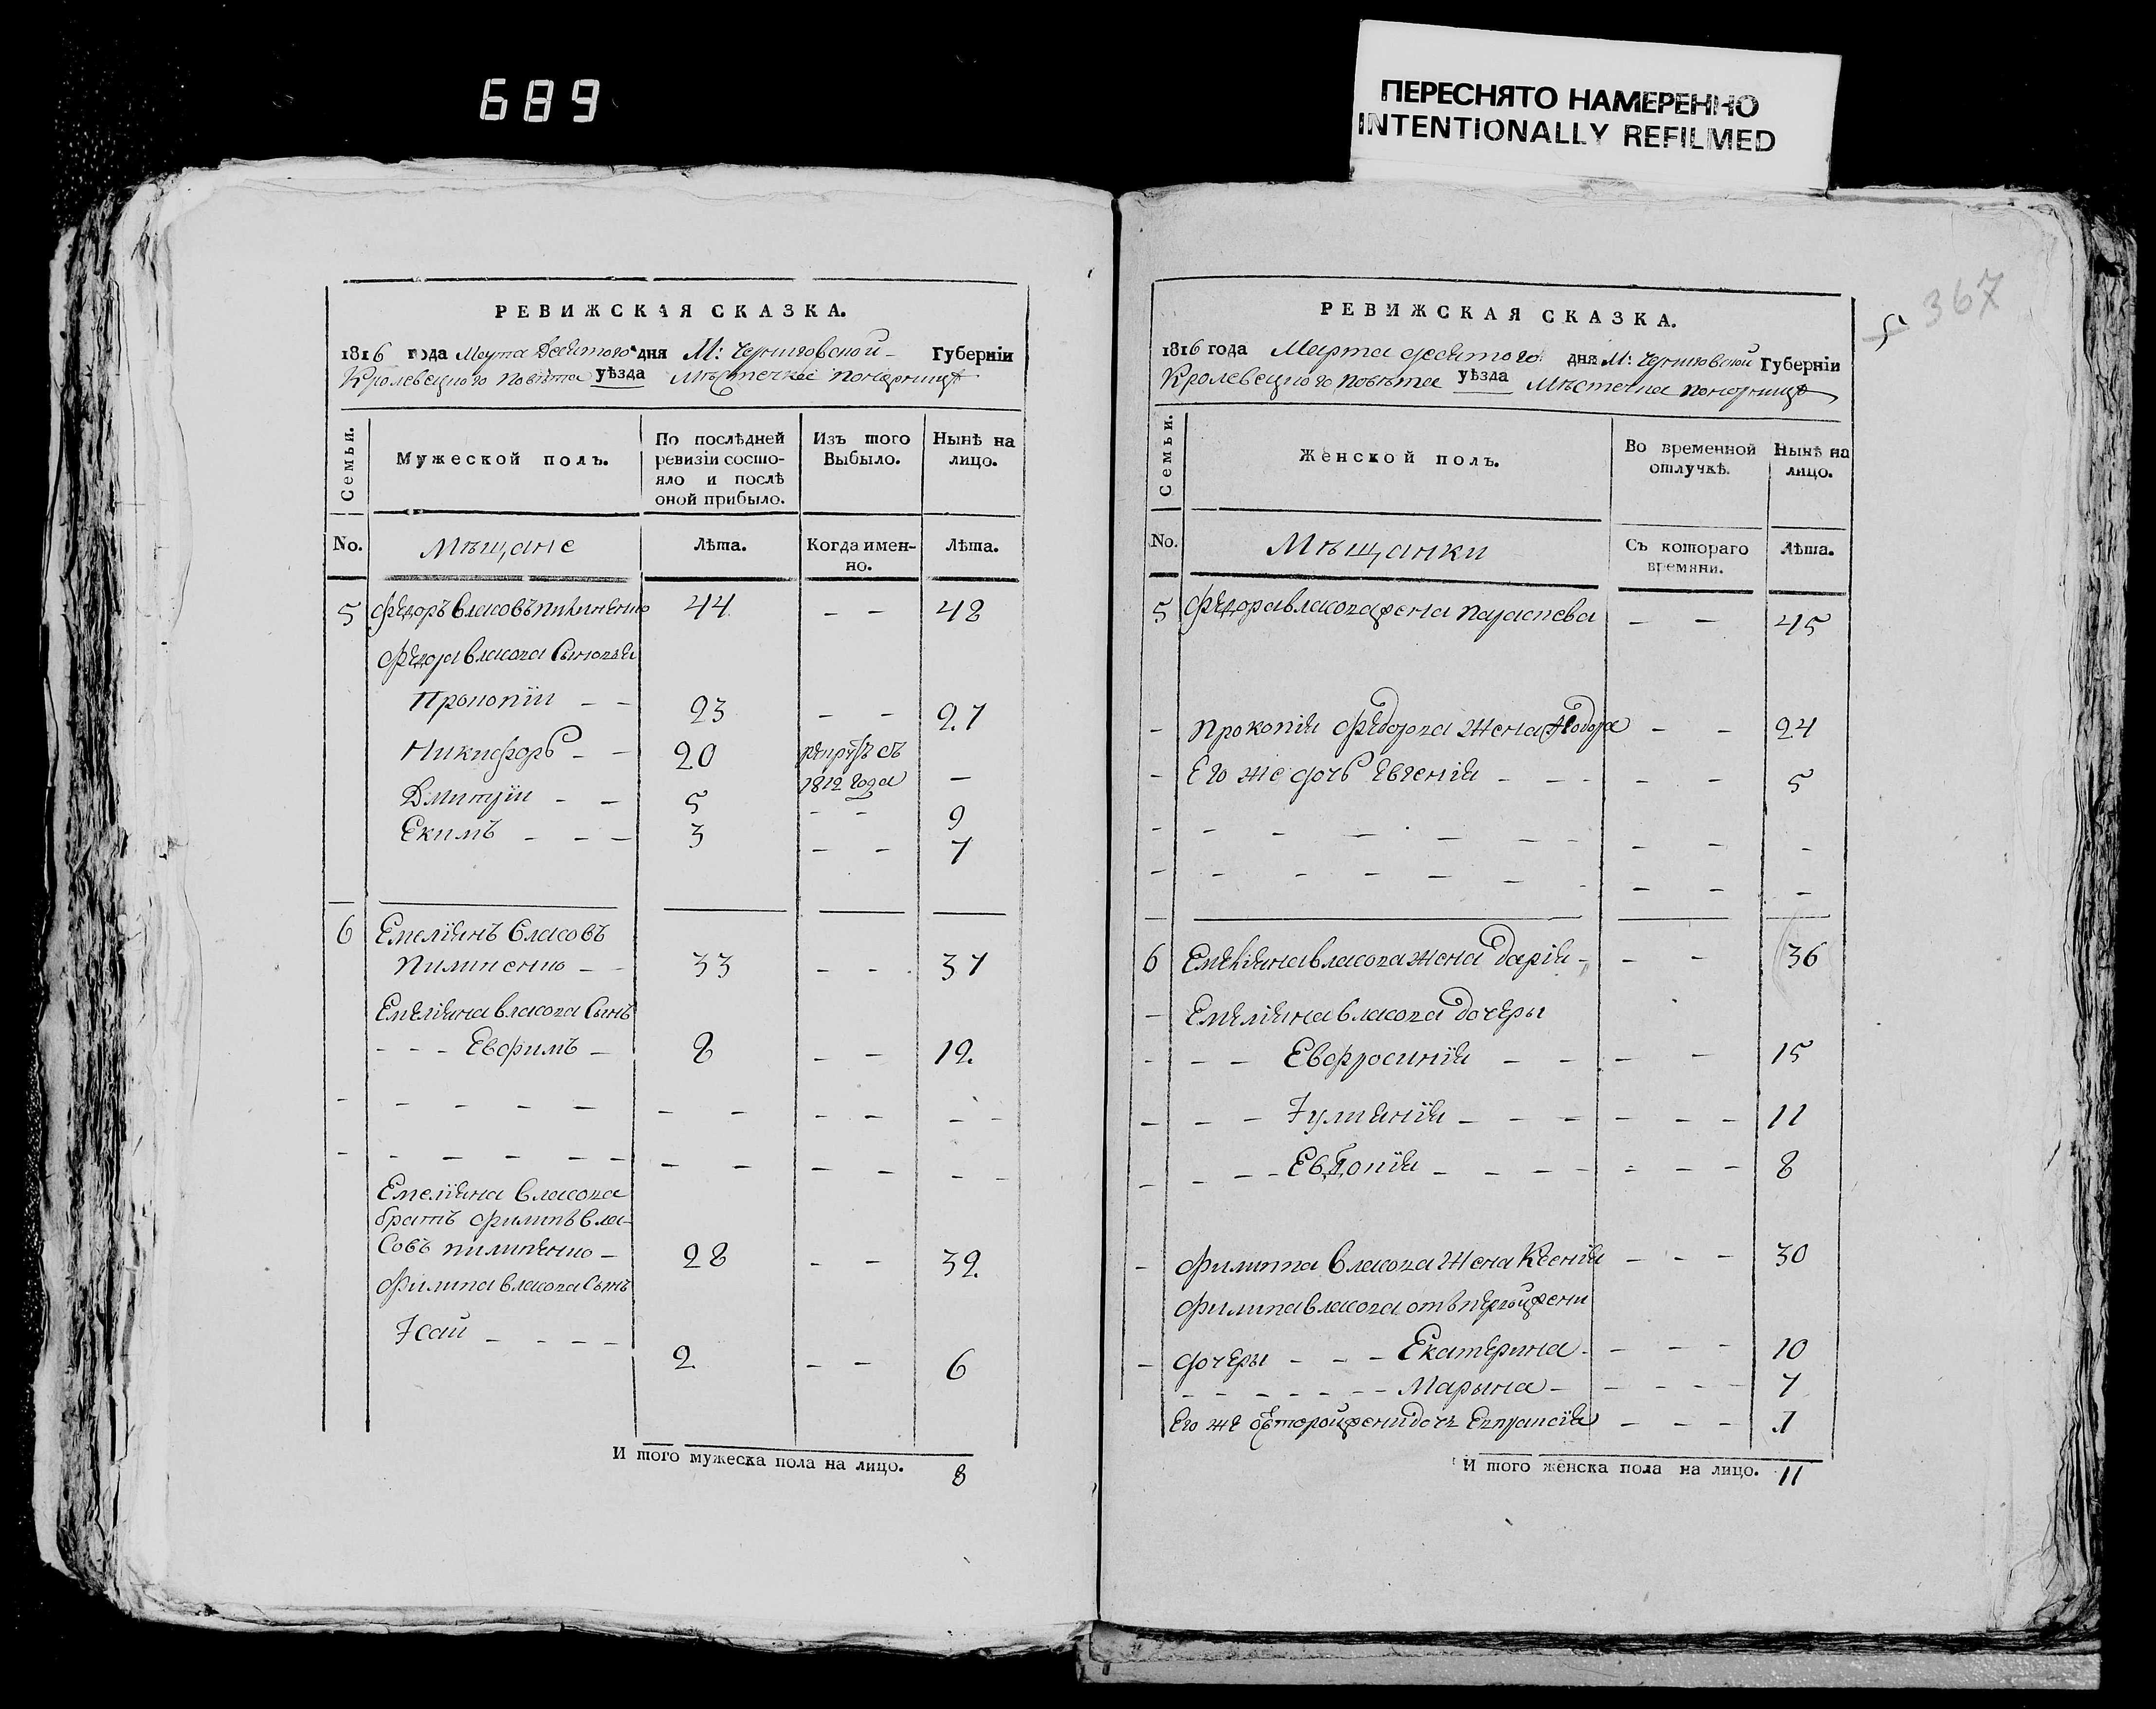 689
ПЕРЕСНЯТО НАМЕРЕННО
INTENTIONALLY REFILMED
367
РЕВИЖСКАЯ СКАЗКА.
1816 года Марта Десятого дня М: Черниговской Губернїи
Кролевецкого Повѣта уѣзда Мѣстечка Понорницѣ
Семьи.
Мужеской полъ.
По послѣдней ревизїи состояло и послѣ оной прибыло.
Изъ того Выбыло.
Нынѣ на лицо.
No.
Мѣщане
Лѣта.
Когда именно.
Лѣта.
5 Федоръ Власовъ Пилипенко 44 — — 48
Федора Власога Сыновья
Прокопїи — — 23 — — 27
Никифоръ — — 20 рекрутъ съ 1812 года —
Дмитрїи — — 5 — — 9
Екимъ — — — 3 — — 7
6 Емелїянъ Власовъ
Пилипенко — — 33 — — 37
Емелїяна Власога Сынъ
— — — Евфимъ — 8 — — 12
Емелїяна Власога
братъ Филипъ Вла-
совъ Пилипенко — 28 — — 32
Филипа Власога Сынъ
Їсаи — — — — 2 — — 6
И того мужеска пола на лицо. 8
РЕВИЖСКАЯ СКАЗКА.
1816 года Марта десятого дня М: Черниговской Губернїи
Кролевецкого Повѣта уѣзда Мѣстечка Понорницѣ
Семьи.
Женской полъ.
Во временной отлучкѣ.
Нынѣ на лицо.
No.
Мѣщанки
Съ котораго времяни.
Лѣта.
5 Федора Власога жена Параскева — — 45
— Прокопїя Федорога Жена — — 24
— Его же дочь Евгенїя — — — — — 5
6 Емелїяна Власога жена Дарїя — — — 36
— Емелїяна Власога дочеры
— — — Евфросинїя — — — — 15
— — — Їулиянїя — — — — — — 11
— — — Евдокїя — — — — — — — 8
— Филиппа Власога Жена Ксенїя — — — 30
Филипа Власога отъ первой жени
— дочеры — — — Екатерина — — — — 10
— — — — — — — Марына — — — — — 7
Его же отъ второй жени дочь — — — 1
И того женска пола на лицо. 11